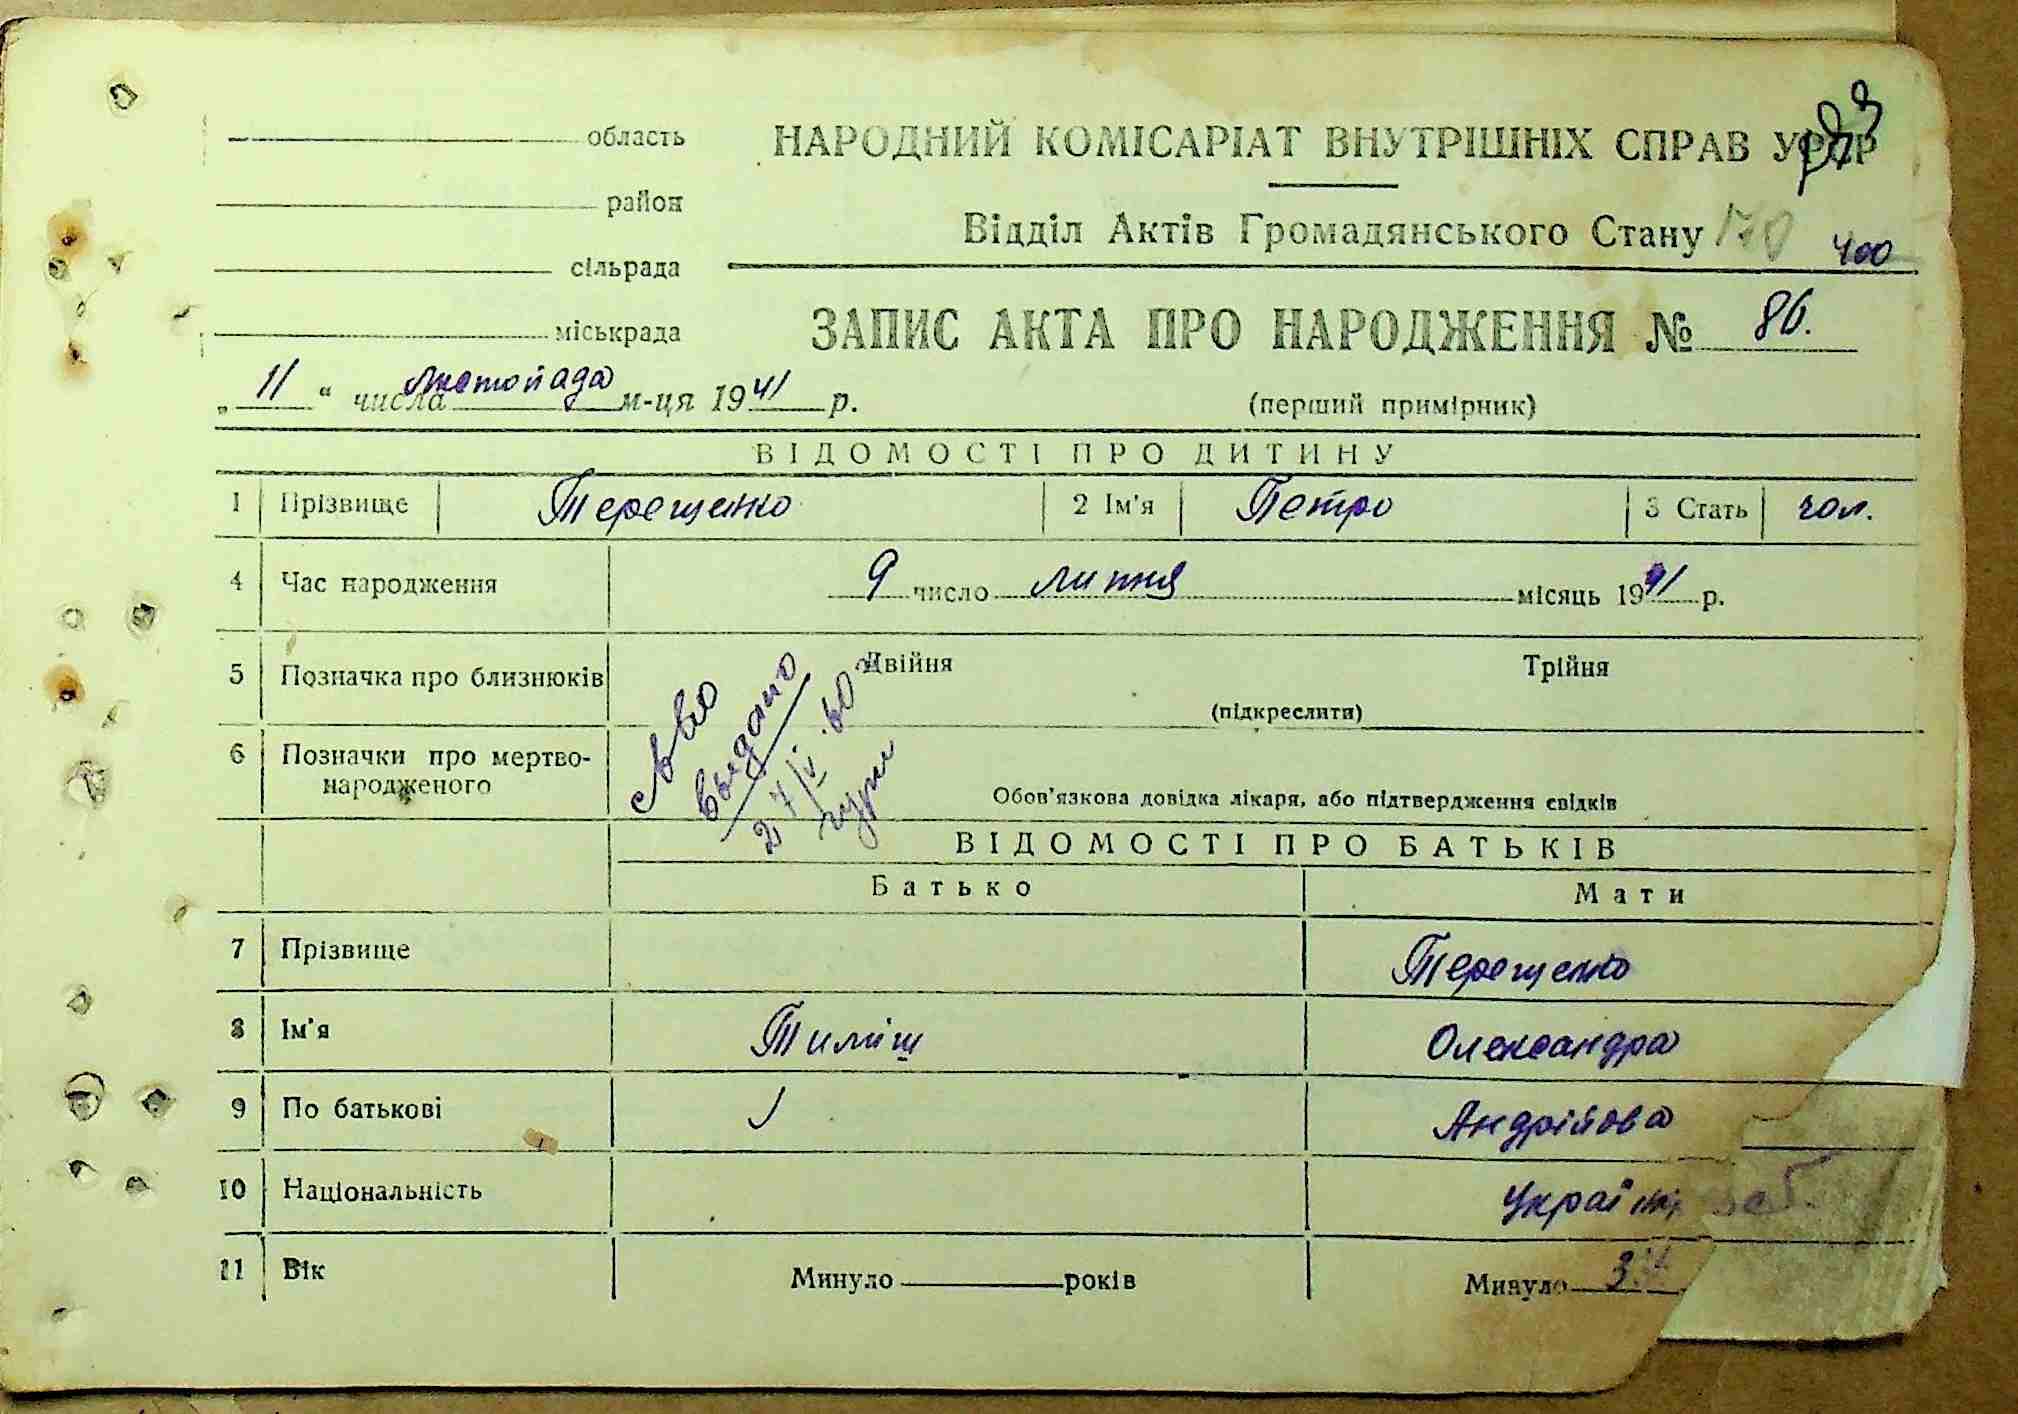 область
НАРОДНИЙ КОМІСАРІАТ ВНУТРІШНІХ СПРАВ УРСР
район
Відділ Актів Громадянського Стану 170
400
сільрада
міськрада
ЗАПИС АКТА ПРО НАРОДЖЕННЯ № 86.
„ 11 “ числа листопада м-ця 1941 р.
(перший примірник)
ВІДОМОСТІ ПРО ДИТИНУ
1 Прізвище Терещенко 2 Ім'я Петро 3 Стать чол.
4 Час народження 9 число липня місяць 1941 р.
5 Позначка про близнюків Двійня Трійня
(підкреслити)
6 Позначки про мертво-
народженого
Обов'язкова довідка лікаря, або підтвердження свідків
выдано
27/V.60
ВІДОМОСТІ ПРО БАТЬКІВ
Батько Мати
7 Прізвище Терещенко
8 Ім'я Тиміш Олександра
9 По батькові Андрійова
10 Національність
11 Вік Минуло років Минуло